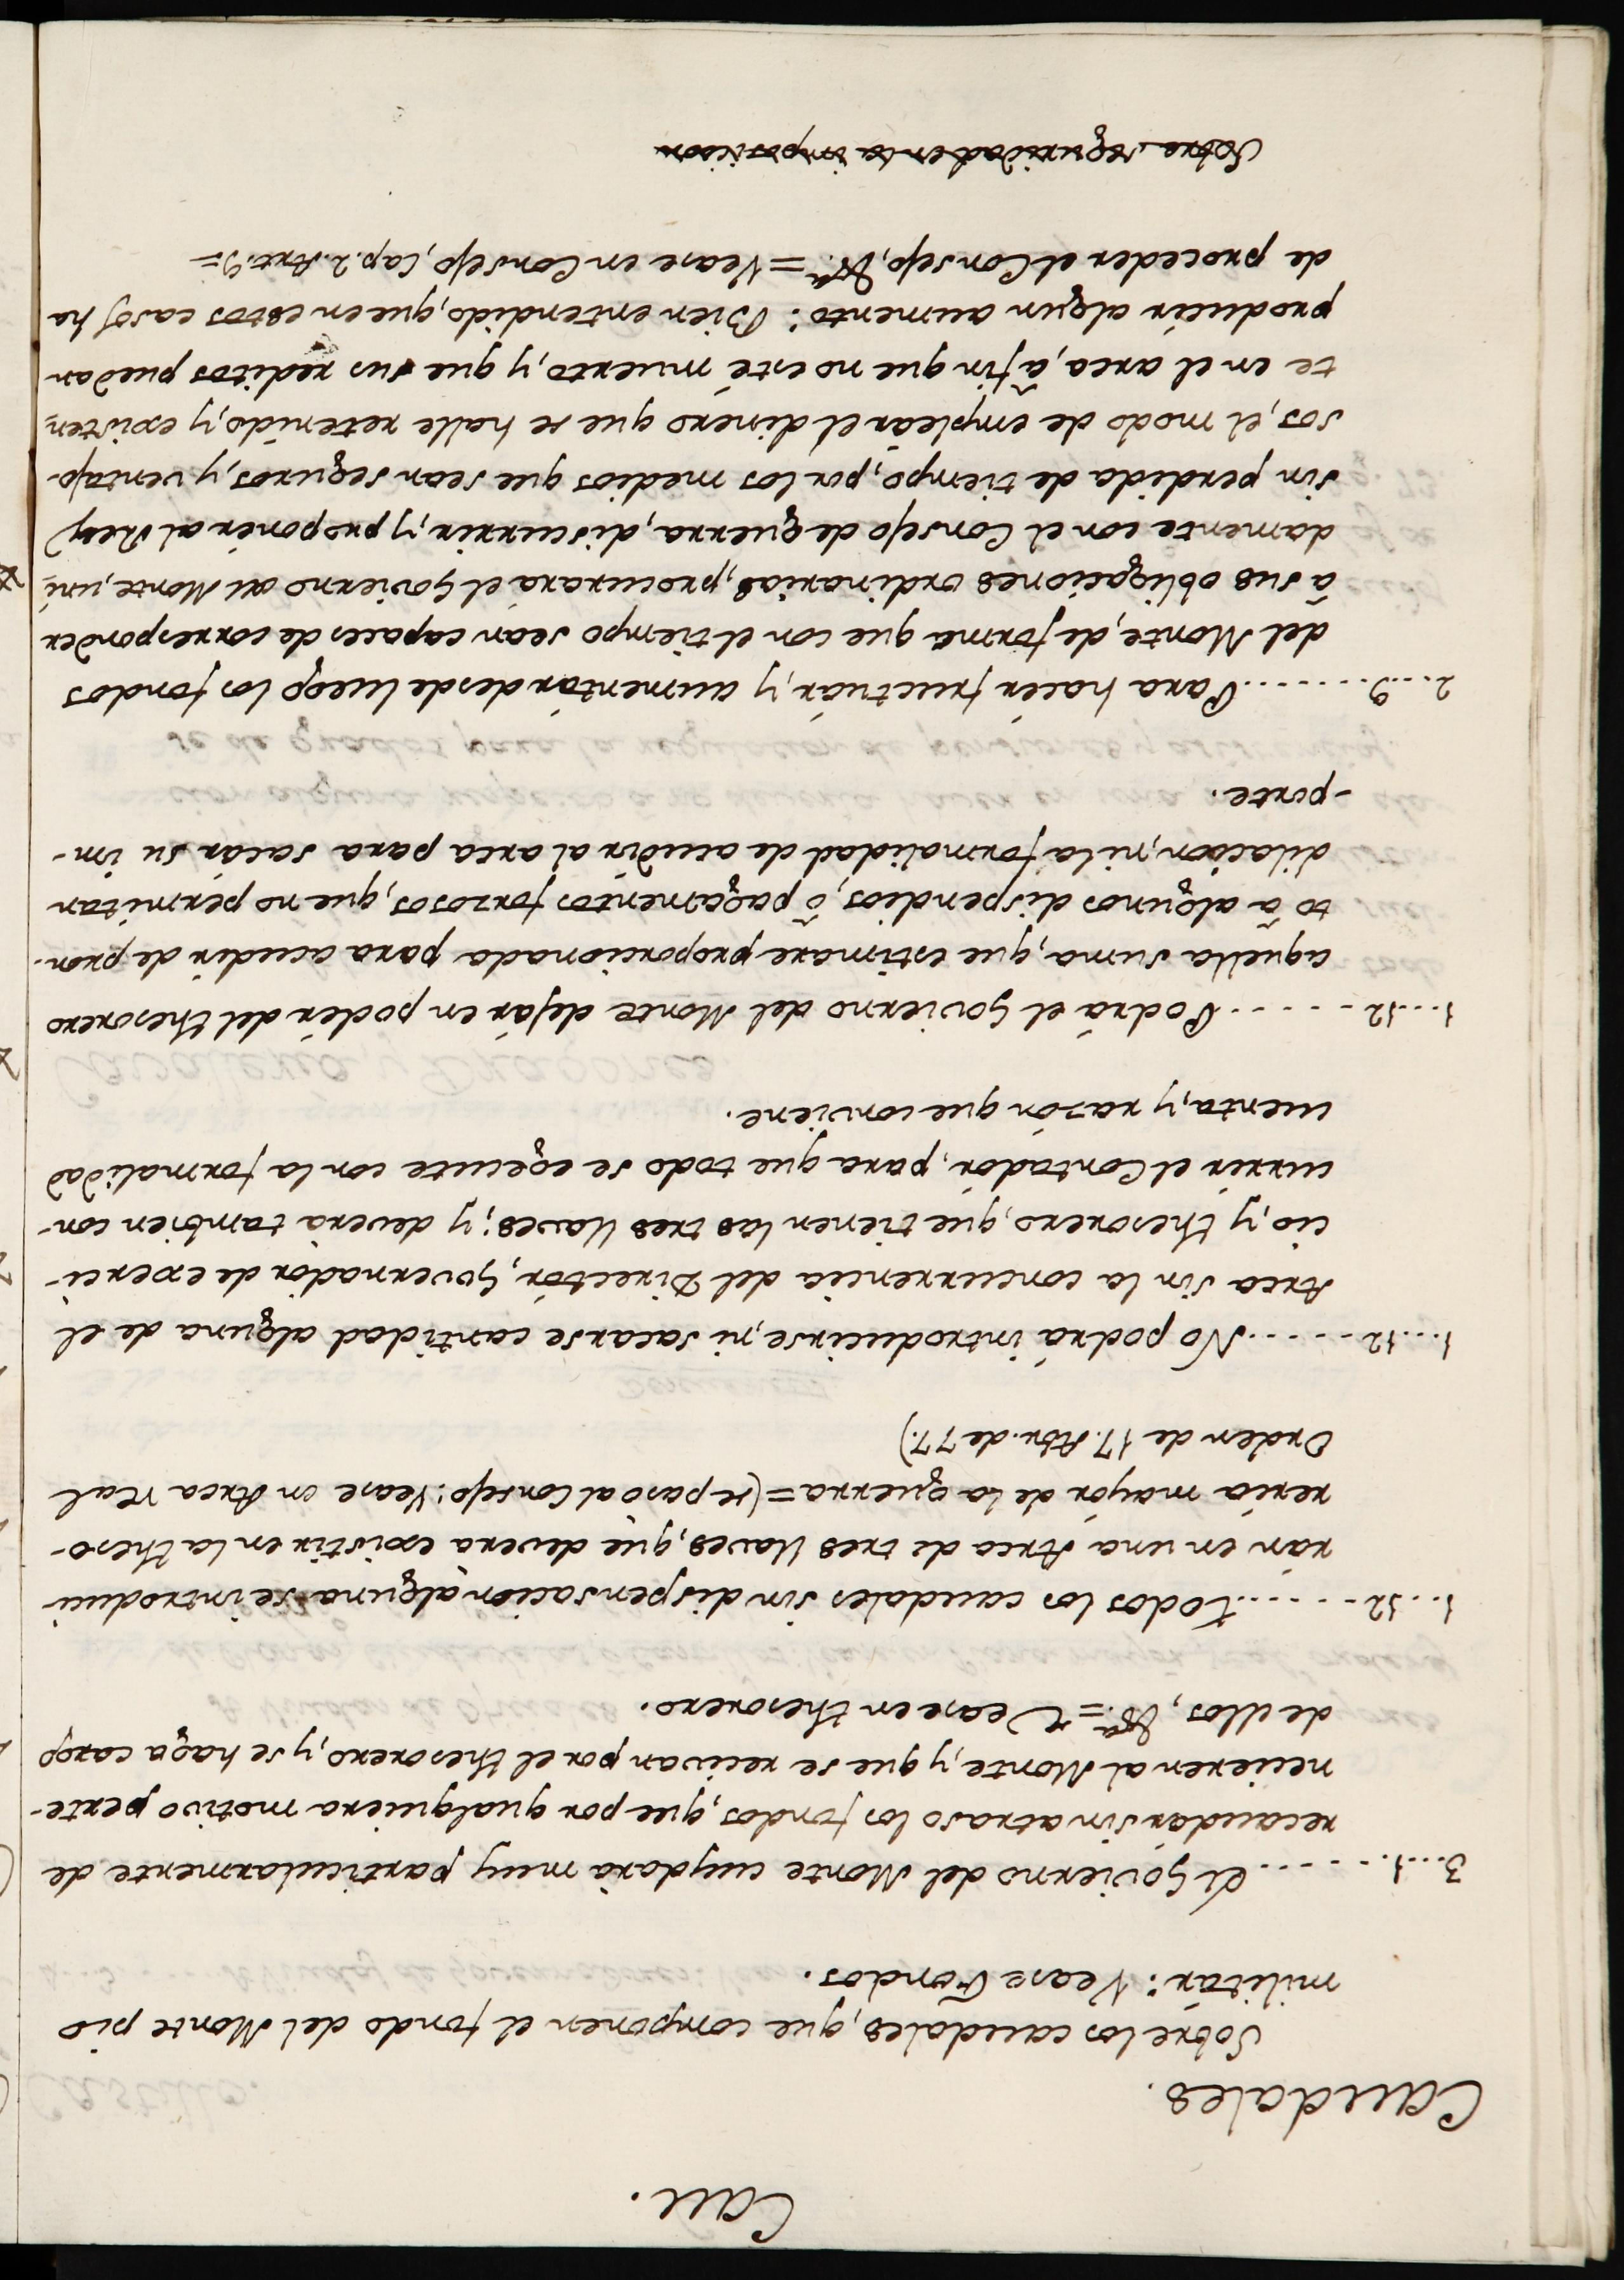 Cau.
Caudales.
Sobre los caudales, que componen el fondo del Monte pio
militár: Vease Fondos.
3...1.......El Govierno del Monte cuydará muy particularmente de
recaudár sin atraso los fondos, que por qualquiera motivo perte-
necieren al Monte, y que se recivan por el thesorero, y se haga cargo
de ellos, &.ª = Vease en thesorero.
1...12.......todos los caudales sin dispensacion alguna se introduci-
rán en una Arca de tres llaves, que devera existir en la theso-
reria mayór de la guerra = (se pasó al Consejo: Vease en Arca real
Orden de 17. Abr. de 77.)
1...12.......No podrá introducirse, ni sacarse cantidad alguna de el
Arca sin la concurrencia del Directór, Governadór de exerci-
cio, y thesorero, que tienen las tres llaves; y deverá tambien con-
currir el Contadór, para que todo se egecute con la formalidad
cuenta, y razón que conviene.
1...12.......Podrá el Govierno del Monte dejár en podér del thesorero
aquella suma, que estimare proporcionada para acudir de pron-
to â algunos dispendios, ô pagamentos forzosos, que no permitan
dilacion, ni la formalidad de acudir al arca para sacár su im-
-porte.
2...9.......Para hacér fructuár, y aumentár desde luego los fondos
del Monte, de forma que con el tiempo sean capaces de corresponder
â sus obligaciones ordinarias, procurará el Govierno del Monte, uni-
damente con el Consejo de guerra, discurrir, y proponér al Rey
sin perdida de tiempo, por los medios que sean seguros, y ventajo-
sos, el modo de empleár el dinéro que se halle retenído, y existen-
te en el arca, â fin que no esté muerto, y que sus reditos puedan
producír algun aumento: Bien entendido, que en estos casos ha
de proceder el Consejo, &.ª = Vease en Consejo, Cap. 2. Art. 9 =
Sobre seguridad en la imposicion